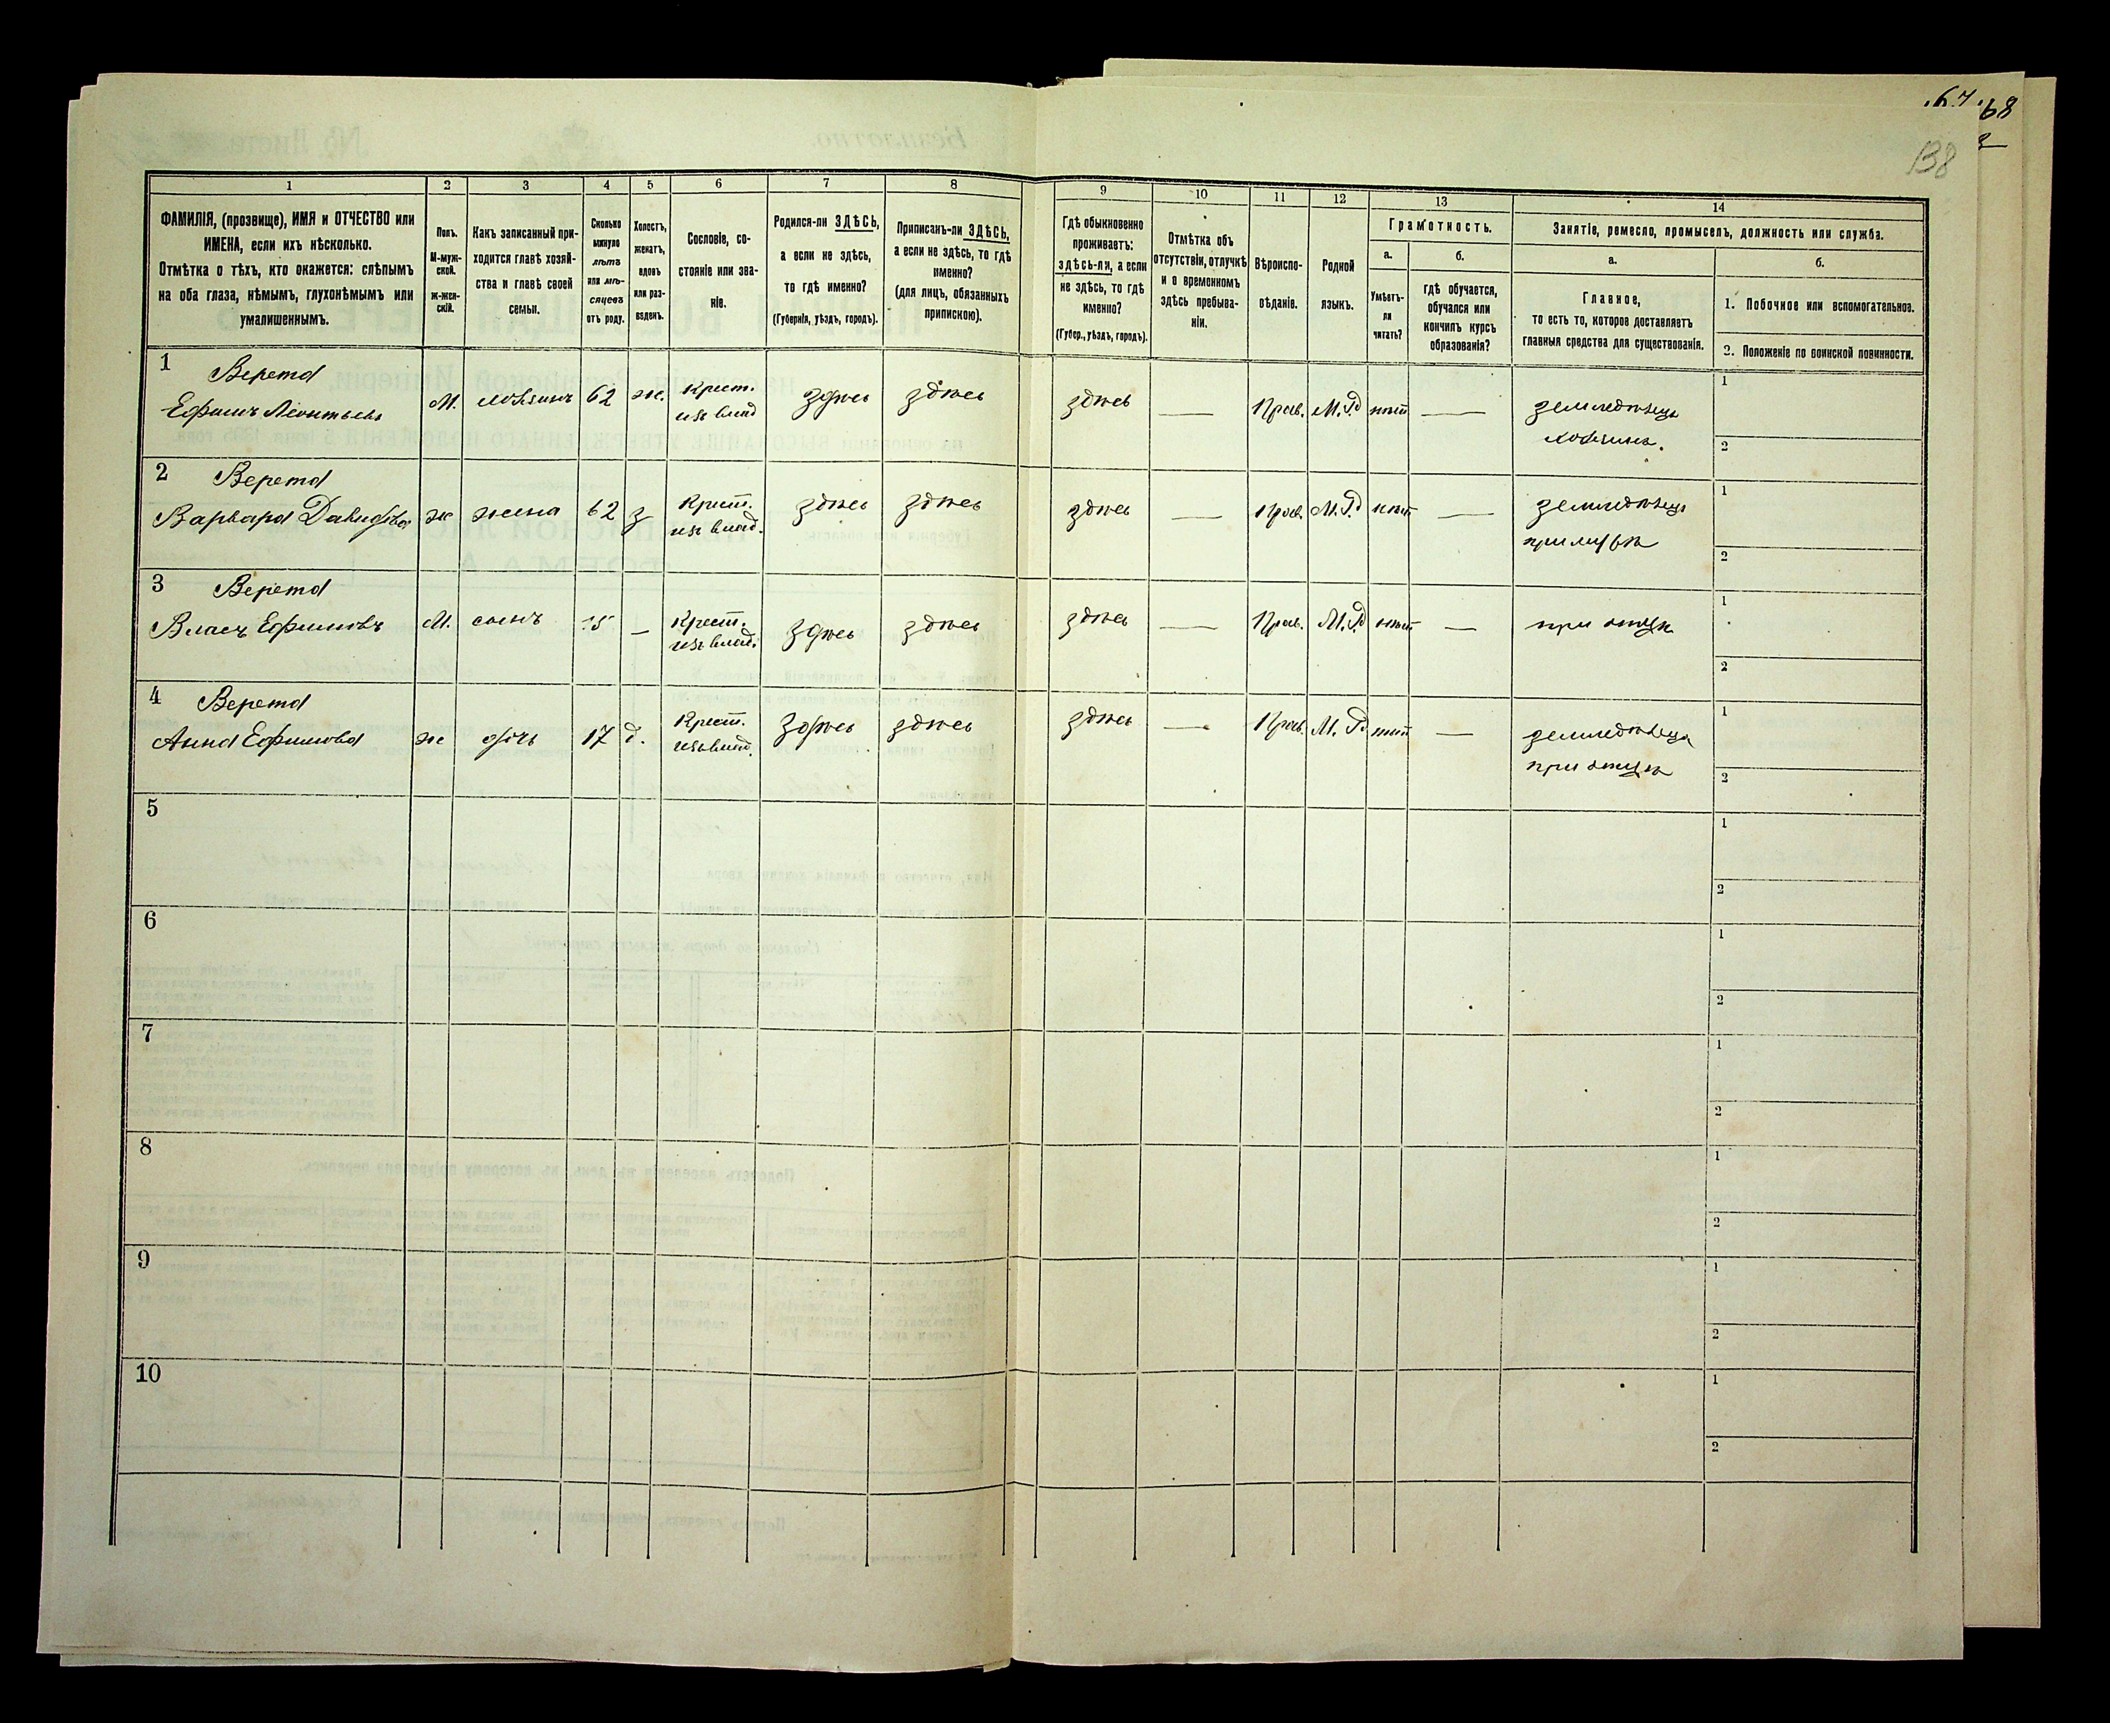 67
68
2
138
1
2
3
4
5
6
7
8
9
10
11
12
13
14
ФАМИЛІЯ, (прозвище), ИМЯ и ОТЧЕСТВО или
ИМЕНА, если ихъ нѣсколько.
Отмѣтка о тѣхъ, кто окажется: слѣпымъ
на оба глаза, нѣмымъ, глухонѣмымъ или
умалишеннымъ.
Полъ.
М-муж-
ской.
Ж-жен-
скій.
Какъ записанный при-
ходится главѣ хозяй-
ства и главѣ своей
семьи.
Сколько
минуло
лѣтъ
или мѣ-
сяцевъ
отъ роду.
Холостъ,
женатъ,
вдовъ
или раз-
веденъ.
Сословіе, со-
стояніе или зва-
ніе.
Родился-ли ЗДѢСЬ,
а если не здѣсь,
то гдѣ именно?
(Губернія, уѣздъ, городъ).
Приписанъ-ли ЗДѢСЬ,
а если не здѣсь, то гдѣ
именно?
(для лицъ, обязанныхъ
припискою).
Гдѣ обыкновенно
проживаетъ:
здѣсь-ли, а если
не здѣсь, то гдѣ
именно?
(Губер., уѣздъ, городъ).
Отмѣтка объ
отсутствіи, отлучкѣ
и о временномъ
здѣсь пребыва-
ніи.
Вѣроиспо-
вѣданіе.
Родной
языкъ.
Грамотность.
а.
Умѣетъ-
ли
читать?
б.
гдѣ обучается,
обучался или
кончилъ курсъ
образованія?
Занятіе, ремесло, промыселъ, должность или служба.
а.
Главное,
то есть то, которое доставляетъ
главныя средства для существованія.
б.
1. Побочное или вспомогательное.
2. Положеніе по воинской повинности.
1 Верета
Ефимъ Леонтьевъ М. хозяинъ 62 ж. Крест. здѣсь здѣсь здѣсь — Прав. М.Р. нѣтъ — земледѣлецъ 1
изъ влад. хозяинъ. 2
2 Верета
Варвара Давидова ж жена 62 з Крест. здѣсь здѣсь здѣсь — Прав. М.Р. нѣтъ — 1
изъ влад. при мужѣ 2
3 Верета
Власъ Ефимовъ М. сынъ — Крест. здѣсь здѣсь здѣсь — Прав. М.Р. нѣтъ — при отцѣ 1
изъ влад. 2
4 Верета
Анна Ефимова ж дочь 17 д. Крест. здѣсь здѣсь здѣсь — Прав. М.Р. нѣтъ — 1
изъ влад. при отцѣ 2
5 1
2
6 1
2
7 1
2
8 1
2
9 1
2
10 1
2